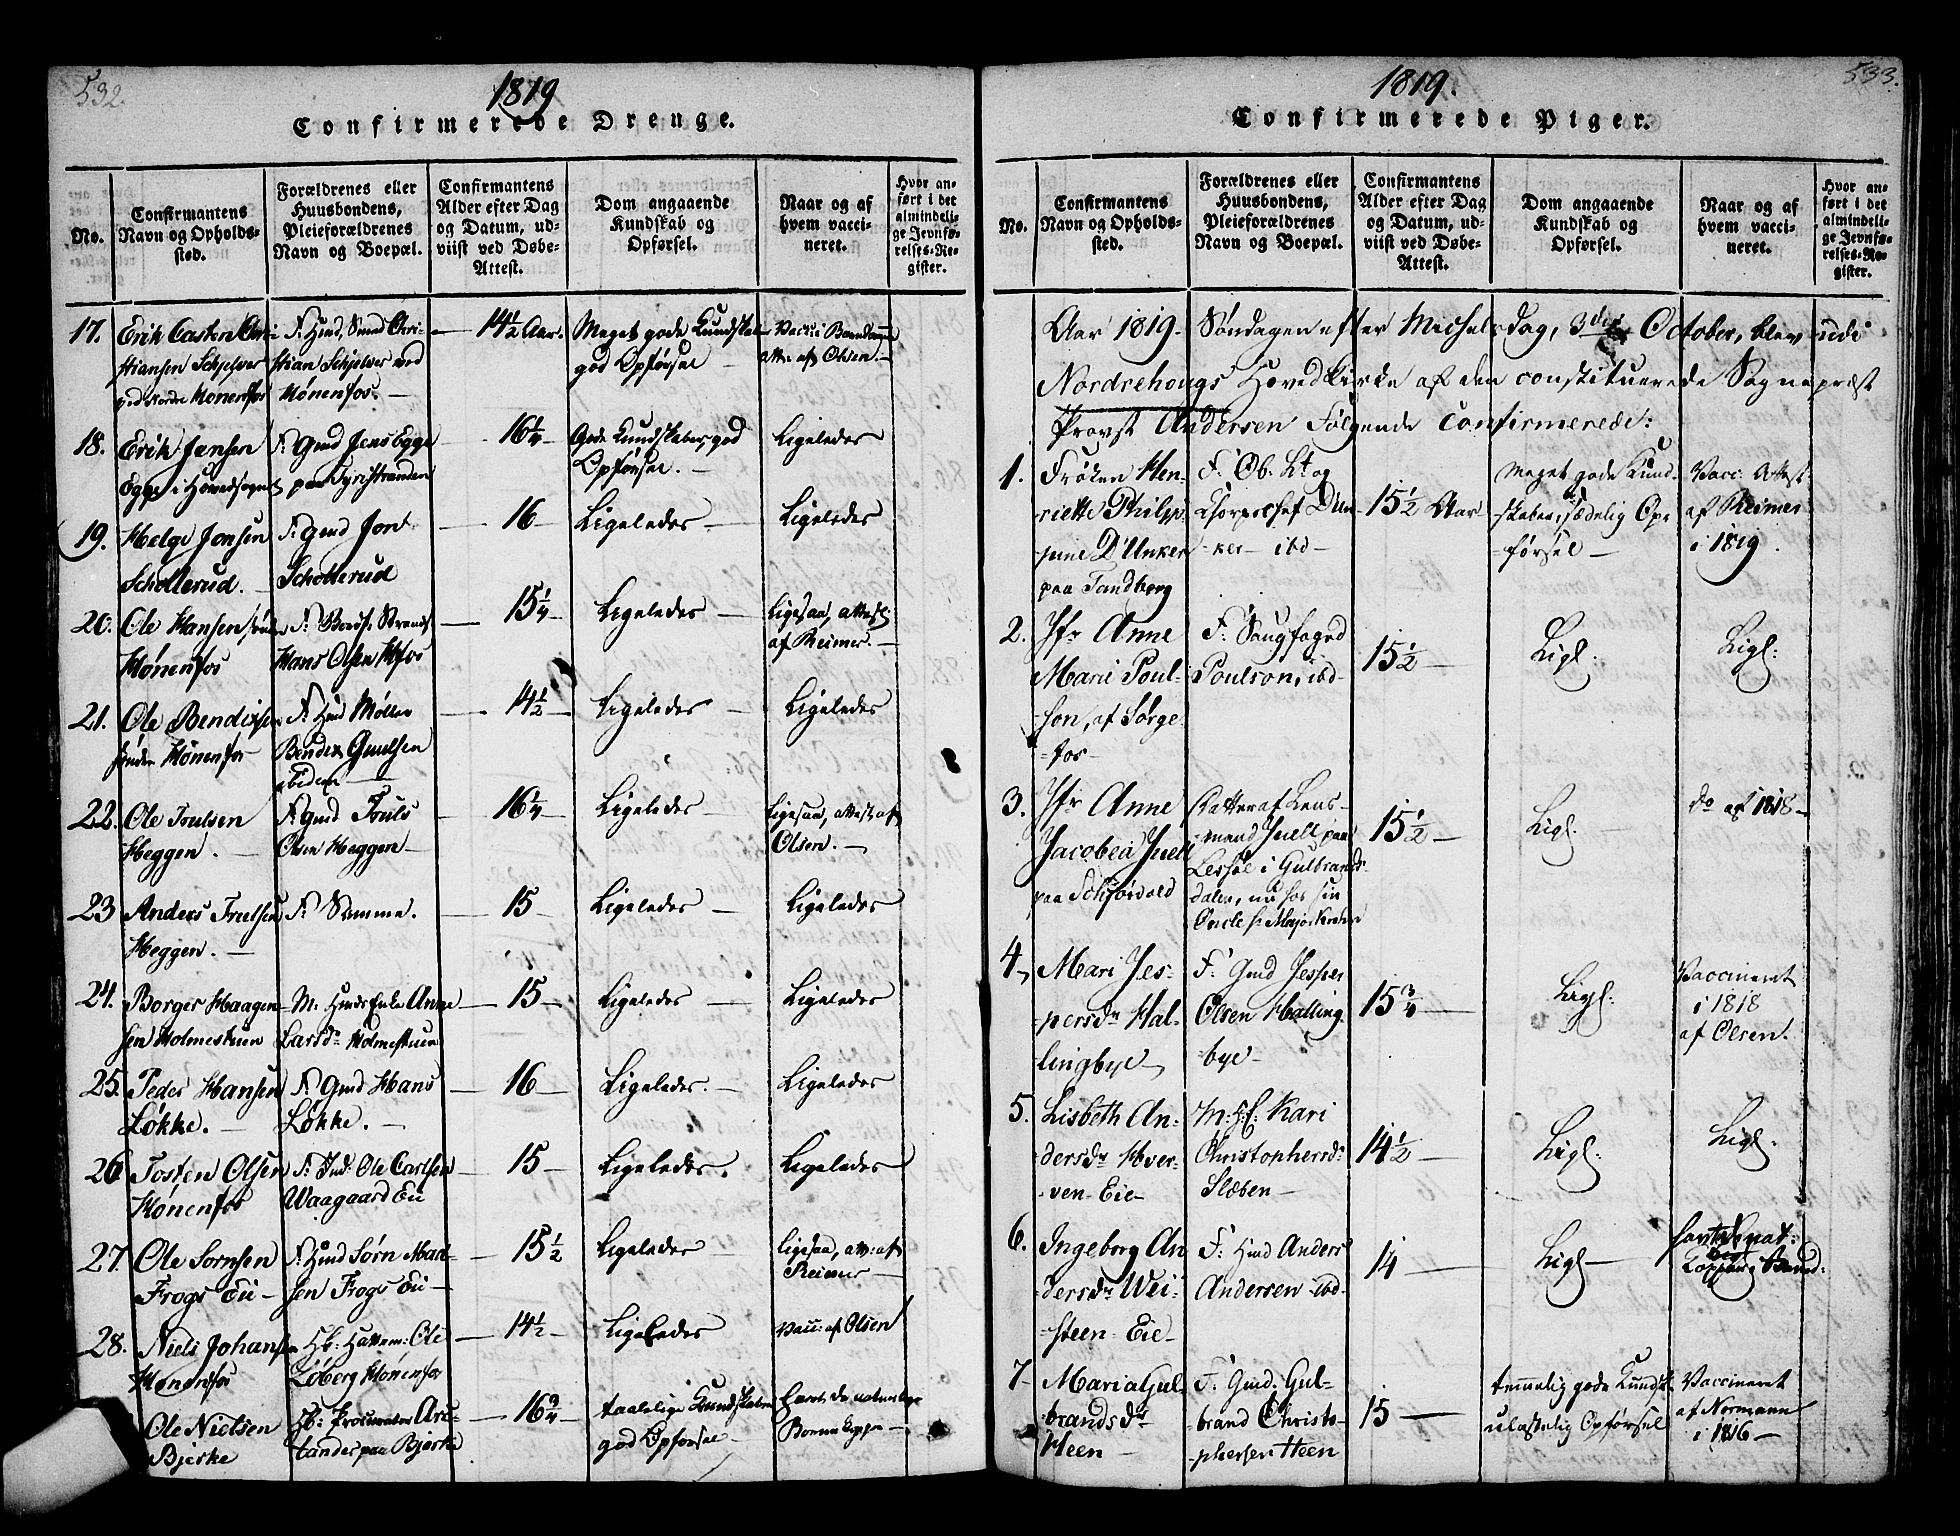 532.
1819
Confirmerede Drenge.
No.
Confirmantens
Navn og Opholds-
sted.
Forældrenes eller
Huusbondens,
Pleieforældrenes
Navn og Boepæl.
Confirmantens
Alder efter Dag
og Datum, ud-
viist ved Døbe-
Attest.
Dom angaaende
Kundskab og
Opførsel.
Naar og af
hvem vacci-
neret.
Hvor an-
ført i det
almindeli-
ge Jevnfø-
relses-Re-
gister.
17.
Erik Casten Chri-
stiansen Schjelver
ved Nordre Hønenfos
F. Huusm. Smed Chri-
stian Schjelver ved
Hønenfos.
14½ Aar.
Meget gode Kundskaber
god Opførsel
af Olsen.
18.
Erik Jensen
Egge i Hovedsognet
F. Gmd Jens Egge
paa Tyristranden
16¼
Gode Kundskaber, god
Opførsel.
Ligeledes
19.
Helge Jonsen
Schollerud.
F. Gmd Jon
Schollerud
16
Ligeledes
Ligeledes
20.
Ole Hansen søndre
Hønenfos
Hans Olsen Hfos
15¼
Ligeledes
Ligesaa, attest
af Reimer.
21.
Ole Bendixsen
søndre Hønenfos
F. Hmd Møller
Bendix Guulsen
ibidem
14½
Ligeledes
Ligeledes
22.
Ole Truulsen
Heggen.
F. Gmd Truls
Olsen Heggen
16¼
Ligeledes
Ligesaa, attest af
Olsen.
23
Anders Trulsen
Heggen.
F. Samme.
15
Ligeledes
Ligeledes
24.
Borger Haagen-
sen Holmestuen
M. Hmds Enke Anne
Larsdr Holmestuen
15
Ligeledes
Ligeledes
25.
Peder Hansen
Løkke.
F. Gmd Hans
Løkke.
16
Ligeledes.
Ligeledes
26
Tosten Olsen
Hønenfos
F. Ind. Ole Carlsen
Waagaard Eie
15
Ligeledes.
Ligeledes
27.
Ole Sørnsen
Frogs Eie
F. Hmd Sørn Mari-
sen Frogs Eie
15½
Ligeledes
ligesaa, att: af
Reimer
28.
Niels Johansen
Hønenfos
Hb: Hattem: Ole
Løberg Hønenfos
14½
Ligeledes
Vacc: af Olsen
Ole Nielsen
Bjerke
Hb: Procurator Arc-
tander paa Bjerke
16¾
taalelige Kundskaber
god Opførsel
havt de naturlige
533.
1819.
Confirmerede Piger.
No.
Confirmantens
Navn og Opholds-
sted.
Forældrenes eller
Huusbondens,
Pleieforældrenes
Navn og Boepæl.
Confirmantens
Alder efter Dag
og Datum, ud-
viist ved Døbe-
Attest.
Dom angaaende
Kundskab og
Opførsel.
Naar og af
hvem vacci-
neret.
Hvor an-
ført i det
almindeli-
ge Jevnfø-
relses-Re-
gister.
Aar 1819. Søndagen efter Michelsdag, 3die October, blev udi
Nordrehougs Hovedkirke af den constituerede Sognepræst
Provst Andersen Følgende Confirmerede:
1.
Frøken Hen-
riette Philip-
pine D'Unker
paa Tandberg
F. Ob. Lt og
Chorpschef Dun-
ker ibd
15½ Aar
Meget gode Kund-
skaber, sædelig Op-
førsel
Vacc. Attest
af Reimer
i 1819.
2.
Jfr Anne
Marie Poul-
son, af Sørge-
fos
F. Sougfoged
Poulson, ibd
15½
Ligl:
Ligl:
3.
Jfr Anne
Jacobea Juell
paa Schjørvold
Datter af Lens-
mand Juell paa
Lessøe i Gulbrands-
dalen, nu hos sin
15½
Ligl.
do af 1818
4
Mari Jes-
persdr Hal-
lingbye
F. Gmd Jesper
Olsen Halling-
bye
15¾
Ligl:
Vaccineret
i 1818
af Olsen.
5.
Lisbeth An-
dersdr Hver-
ven Eie
M: Kari
Christophersdr
Sleben
14½
Ligl:
Ligl.
6.
Ingeborg An
dersdr Wei-
steen Eie
F. Hmd Anders
Andersen ibd
14
Ligl
7
Maria Gul
brandsdr
Heen
F. Gmd. Gul-
brand Christo-
phersen Heen
15
temmelig gode Kundsk.
ulastelig Opførsel
Vaccineret
af Normann
i 1816